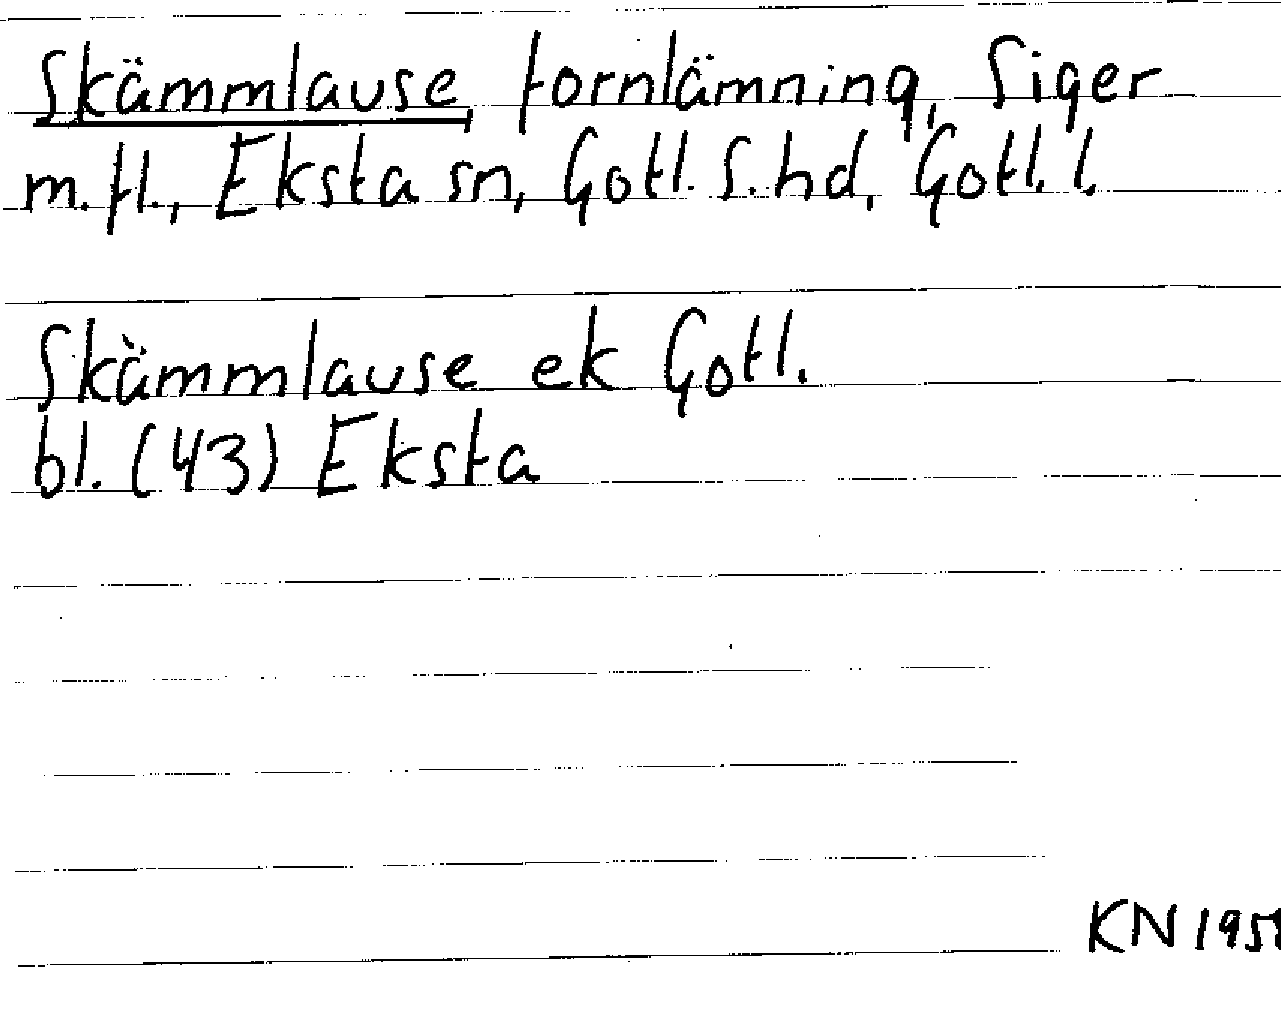 Skämmlause, fornlämning, Siger
m.fl., Eksta sn, Gotl. S. hd, Gotl. l.
Skämmlause ek Gotl.
bl. (43) Eksta
KN